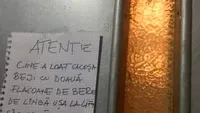 ATENȚIE
CINE A LUAT CACIOSA
BEJI CU DOUĂ
FLACOANE DE BERE
DE LÎNGĂ UȘA LA